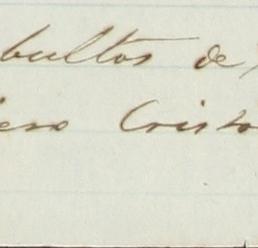 bultos de
Cristo